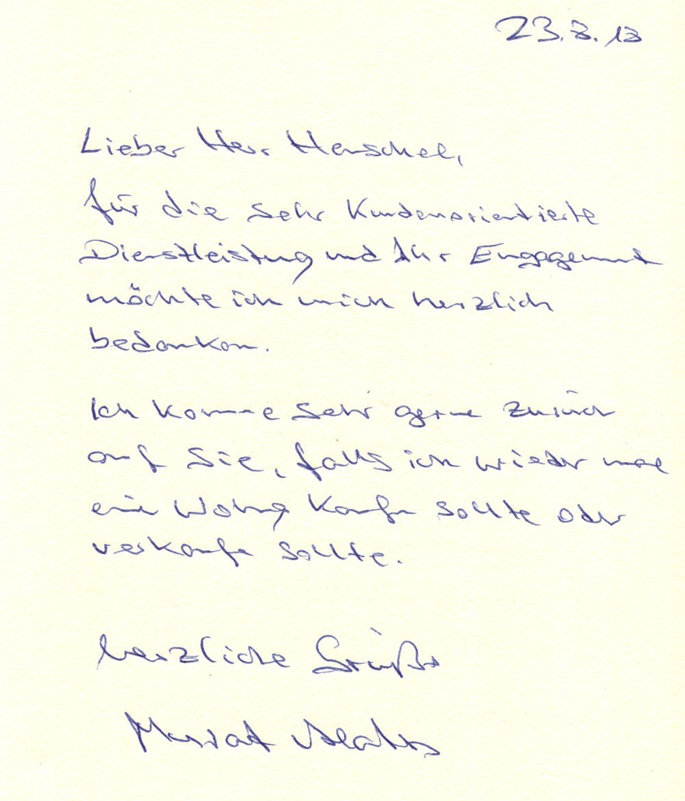 23.8.13
Lieber Herr Henschel,
für die sehr Kundenorientierte
Dienstleistung und Ihr Engagement
möchte ich mich herzlich
bedanken.
Ich komme sehr gerne zurück
auf Sie, falls ich wieder mal
eine Wohng kaufen sollte oder
verkaufen sollte.
herzliche Grüße
Murat